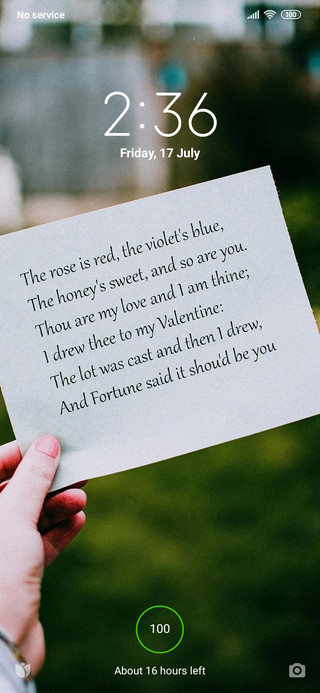 No service
100
2:36
Friday, 17 July
The rose is red, the violet's blue,
The honey's sweet, and so are you.
Thou are my love and I am thine;
I drew thee to my Valentine:
The lot was cast and then I drew,
And Fortune said it shou'd be you
100
About 16 hours left